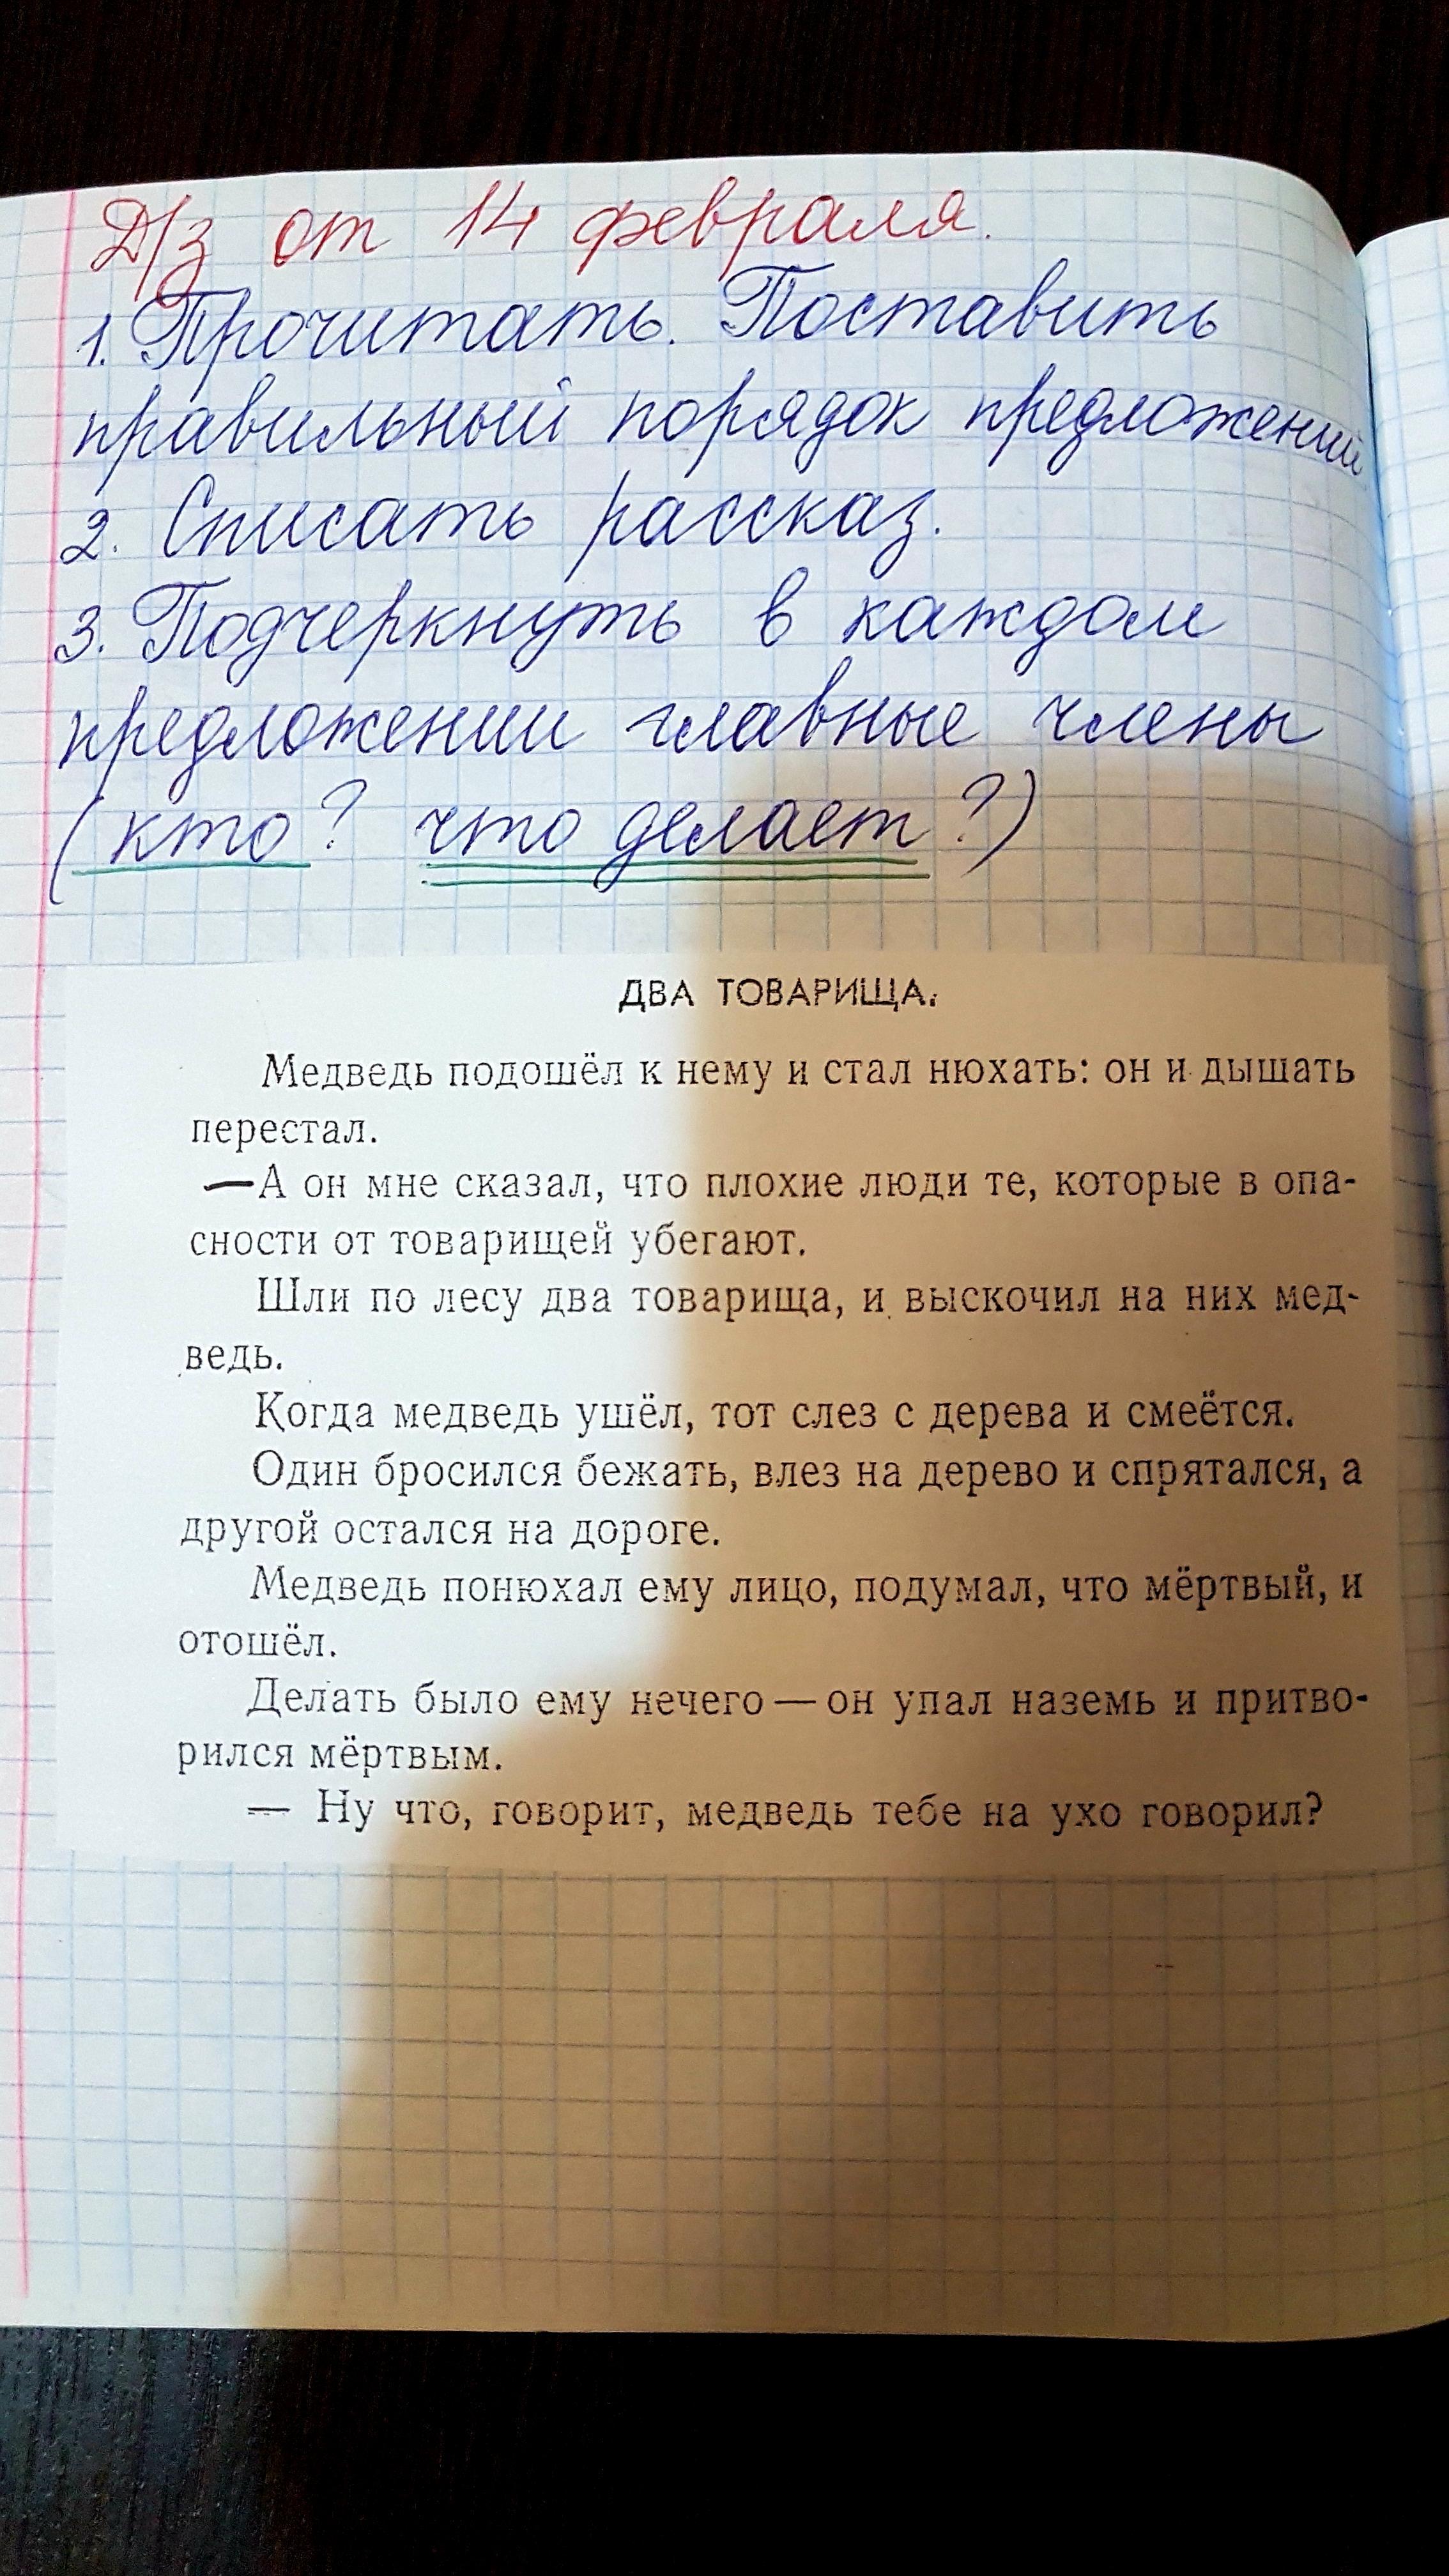 Д/з от 14 февраля.
1. Прочитать. Поставить
правильный порядок предложений
2. Списать рассказ.
3. Подчеркнуть в каждом
предложении главные члены
(кто? что делает?)
ДВА ТОВАРИЩА.
Медведь подошёл к нему и стал нюхать: он и дышать
перестал.
—А он мне сказал, что плохие люди те, которые в опа-
сности от товарищей убегают.
Шли по лесу два товарища, и выскочил на них мед-
ведь.
Когда медведь ушёл, тот слез с дерева и смеётся.
Один бросился бежать, влез на дерево и спрятался, а
другой остался на дороге.
Медведь понюхал ему лицо, подумал, что мёртвый, и
отошёл.
Делать было ему нечего — он упал наземь и притво-
рился мёртвым.
— Ну что, говорит, медведь тебе на ухо говорил?